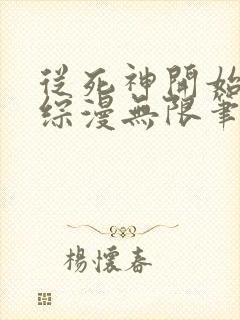 從死神開始
綜漫無限筆
楊懷春